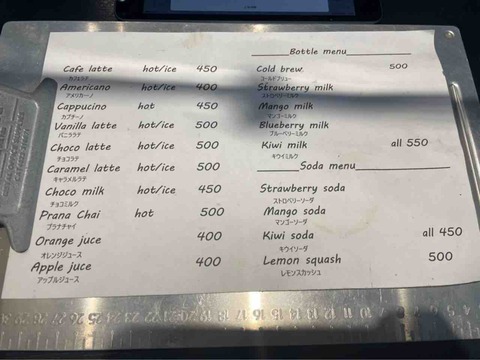 Cafe latte hot/ice 450
カフェラテ
Americano hot/ice 400
アメリカーノ
Cappucino hot 450
カプチーノ
Vanilla latte hot/ice 500
バニララテ
Choco latte hot/ice 500
チョコラテ
Caramel latte hot/ice 500
キャラメルラテ
Choco milk hot/ice 450
チョコミルク
Prana Chai hot 500
プラナチャイ
Orange juce 400
オレンジジュース
Apple juce 400
アップルジュース
Bottle menu
Cold brew. 500
コールドブリュー
Strawberry milk
ストロベリーミルク
Mango milk
マンゴーミルク
Blueberry milk
ブルーベリーミルク
Kiwi milk all 550
キウイミルク
Soda menu
Strawberry soda
ストロベリーソーダ
Mango soda
マンゴーソーダ
Kiwi soda all 450
キウイソーダ
Lemon squash 500
レモンスカッシュ